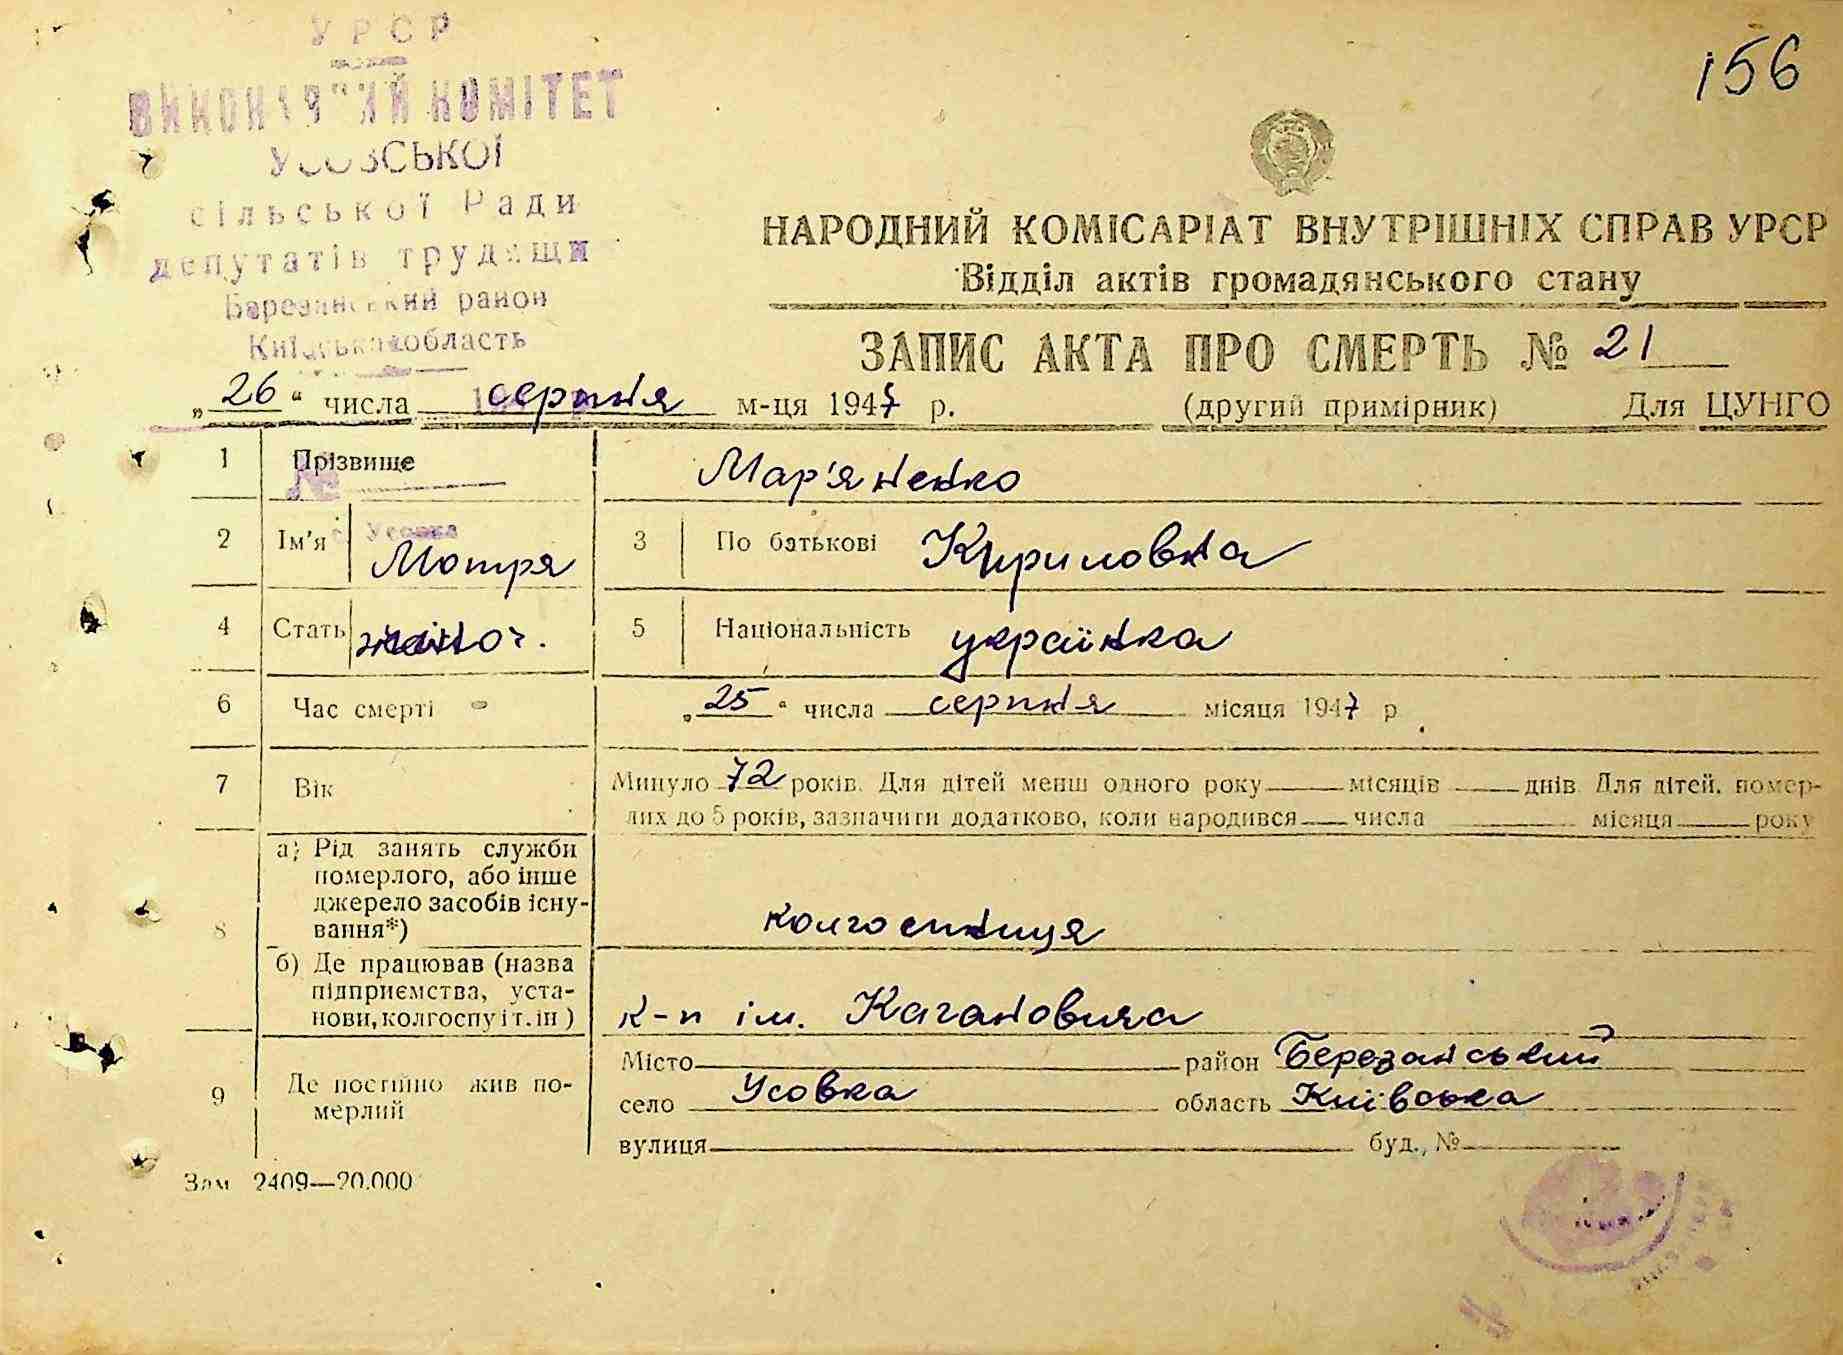 156
УРСР
ВИКОНАВЧИЙ КОМІТЕТ
УСОВСЬКОЇ
сільської Ради
депутатів трудящи
Березанський район
Київська область
НАРОДНИЙ КОМІСАРІАТ ВНУТРІШНІХ СПРАВ УРСР
Відділ актів громадянського стану
ЗАПИС АКТА ПРО СМЕРТЬ № 21
„26“ числа серпня м-ця 1947 р. (другий примірник) Для ЦУНГО
1 Прізвище Мар'яненко
№
с. Усовка
2 Ім'я Мотря 3 По батькові Кириловна
4 Стать жіноч. 5 Національність українка
6 Час смерті „25“ числа серпня місяця 1947 р
7 Вік Минуло 72 років. Для дітей менш одного року місяців днів. Для дітей, помер-
лих до 5 років, зазначити додатково, коли народився числа місяця року
8 а) Рід занять служби
померлого, або інше
джерело засобів існу-
вання*) колгоспниця
б) Де працював (назва
підприємства, уста-
нови, колгоспу і т. ін) к-п ім. Кагановича
9 Де постійно жив по-
мерлий
Місто район Березанський
село Усовка область Київська
вулиця буд., №
Зам 2409—20.000